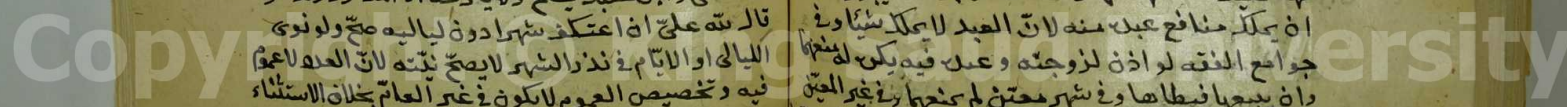 ان يملك منافع عبده منه لان العبد لا يملك شيئا وفى
جوامع الفقه لو اذن لزوجته و عبده فيه يكن له منعهما
وان بيعها فيطاها وفى شهر معين لم يمنعها وفى غير المعين
قال لله علىّ ان اعتكف شهرا دون لياليه صح ولو نوى
الليالى او الايام فى نذر الشهر لا يصح نيته لان العدد لا عموم
فيه و تخصيص العموم لا يكون فى غير العام بخلاف الاستثناء
Copy University